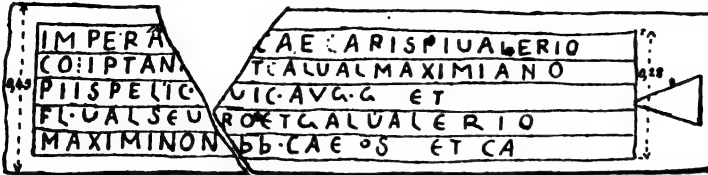 IMPERA CAECARISPIUALERIO
COIIPTAN TCALUALMAXIMIANO
PIISPELIC· UIC·AVG·G ET
FL·UALSEU ROETGALUALERIO
MAXIMINON bb·CAEOS ET CA